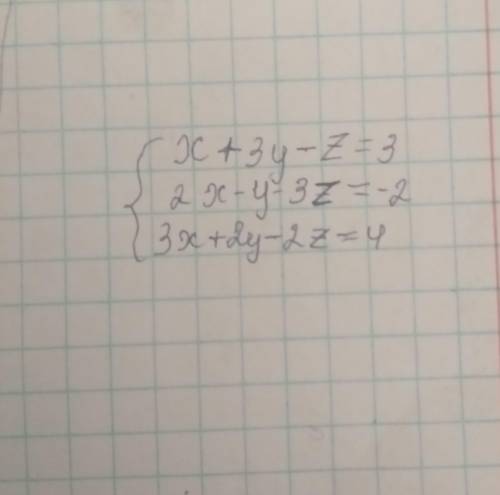 x+3y-z=3
2x-y-3z=-2
3x+2y-2z=4